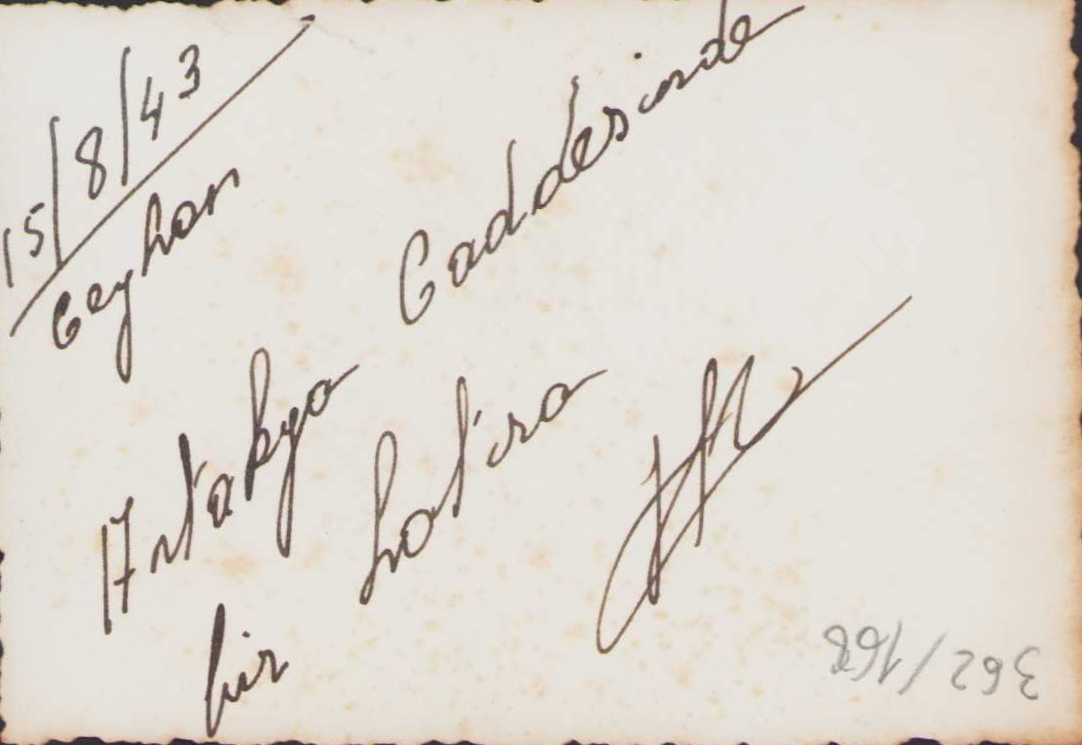 15/8/43
Ceyhan
Antakya Caddesinde
bir hatıra
362/168